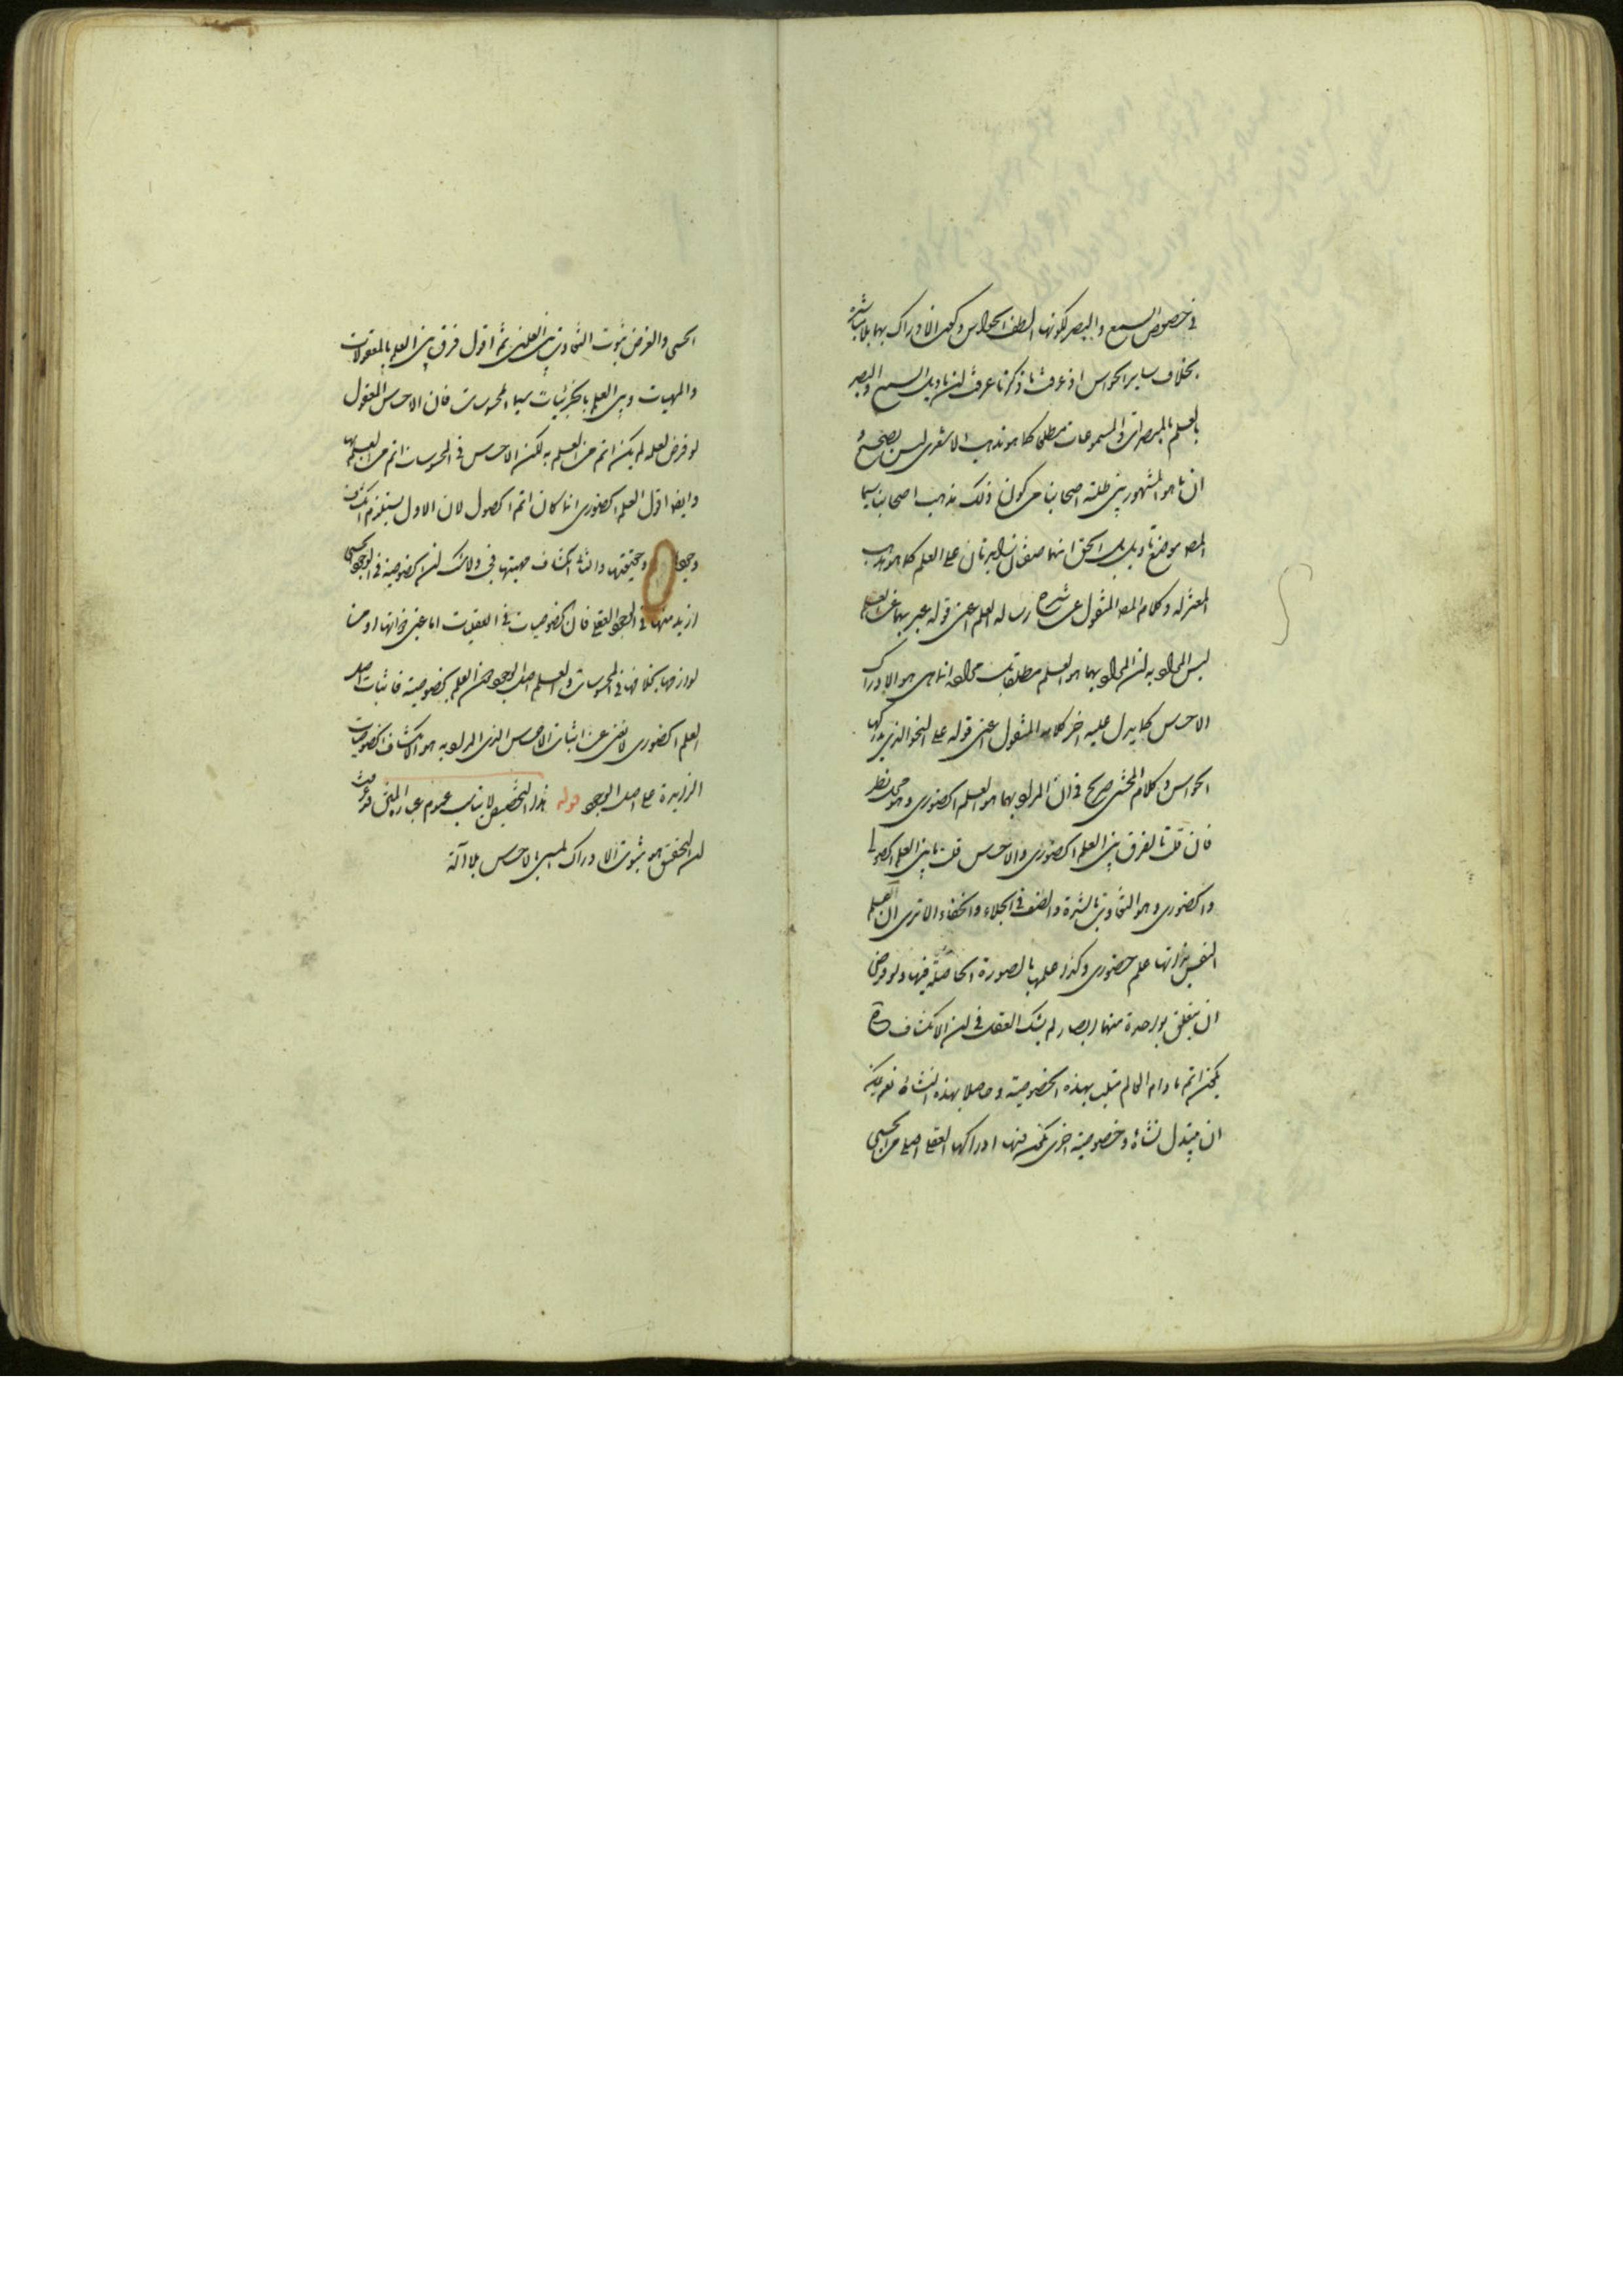 في خصوص السمع والبصر لكونها الطف الحواس وكون الادراك بهما بلا مباشرة
بخلاف ساير الحواس اذ عرفت ما ذكرنا عرفت ان تاويل السمع والبصر
بالعلم بالمبصرات والمسموعات مطلقا كما هو مذهب الاشعري ليس بصحيح و
ان ما هو المشهور بين طلبة اصحابنا من كون ذلك مذهب اصحابنا سيما
المصه موضع تاويل بل الحق انهما صفتان زايدتان على العلم كما هو مذهب
المعتزله وكلام المصه المنقول عن شرح رساله العلم اعني قوله عبر بهما عن العلم
ليس المراد به ان المراد بهما هو العلم مطلقا بل مراده انما هي هو الادراك
الاحساس كما يدل عليه اخر كلامه المنقول اعني قوله على النحو الذي يدركها
الحواس وكلام المحشي صريح في ان المراد بهما هو العلم الحضوري وهو محل نظر
فان قلت ما الفرق بين العلم الحضوري والاحساس قلت ما بين العلم الحصولي
والحضوري وهو التفاوت بالشدة والضعف في الجلاء والخفاء الا ترى ان العلم
النفس بذاتها علم حضوري وكذا علمها بالصورة الحاصلة فيها ولو فرض
ان يتعلق بواحدة منهما ابصار لم يشك العقل في ان الانكشاف ح
يكون اتم ما دام العالم متلبسا بهذه الخصوصية وحاصلا بهذه النشاة نعم يمكن
ان يتبدل نشاة وخصوصية اخرى يكون فيها ادراكها العقلي اجلى من الحسي
الحسي والغرض ثبوت التفاوت بين العلمين ثم اقول فرق بين العلم بالمعقولات
والمهيات وبين العلم بالجزئيات سيما المحسوسات فان الاحساس المعقول
لو فرض لعله لم يكن اتم من العلم به لكن الاحساس في المحسوسات اتم من العلم بها
وايضا اقول العلم الحضوري انما كان اتم الحصول لان الاول يستلزم انكشاف
وجودها وحقيقتها والثاني انكشاف مهيتها في ولا شك ان الخصوصية في الوجود الحسي
ازيد منها في الوجود العقلي فان الخصوصيات في العقليات اما عين ذواتها او من
لوازمها بخلافها في المحسوسات والعلم اصل الوجود من العلم بخصوصية فاثبات اصل
العلم الحضوري لا يغني عن اثبات الاحساس الذي المراد به هو الانكشاف الخصوصيات
الزايدة على اصل الوجود قوله هذا التخصيص لا يناسب عموم عبارة المتن قد عرفت
ان التحقيق هو ثبوت الادراك المسمى بالاحساس بلا آلة